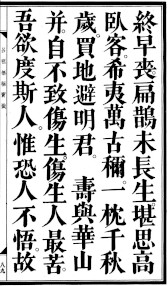 終早喪。扁鵲未長生。堪思高
臥客。希夷萬古稱。一枕千秋
歲。買地避明君。壽與華山
并。自不致傷生。傷生人最苦。
吾欲度斯人。惟恐人不悟。故
八九